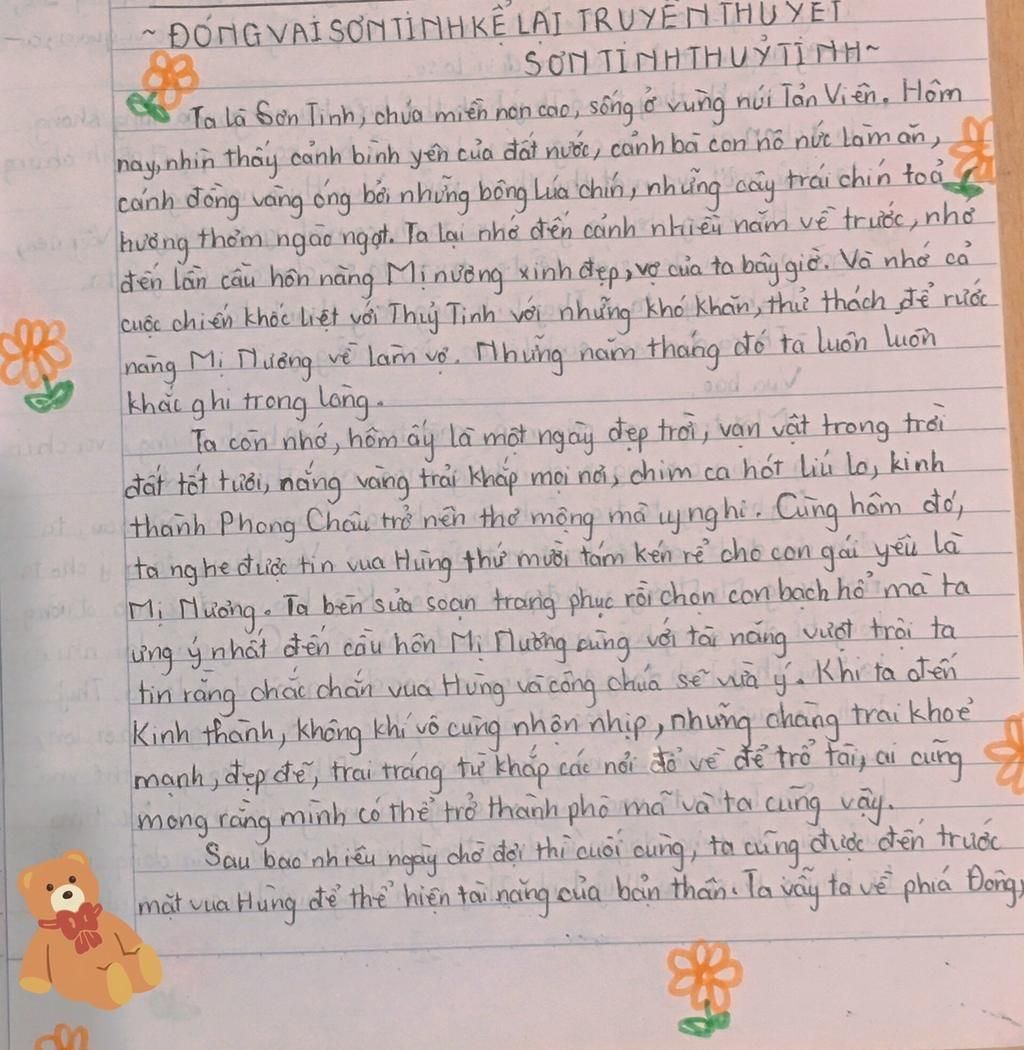 ~ ĐÓNG VAI SƠN TINH KỂ LẠI TRUYỀN THUYẾT
SƠN TINH THUỶ TINH ~
Ta là Sơn Tinh, chúa miền non cao, sống ở vùng núi Tản Viên. Hôm
nay, nhìn thấy cảnh bình yên của đất nước, cảnh bà con nô nức làm ăn,
cánh đồng vàng óng bởi những bông lúa chín, những cây trái chín toả
hương thơm ngào ngạt. Ta lại nhớ đến cảnh nhiều năm về trước, nhớ
đến lần cầu hôn nàng Mị nương xinh đẹp, vợ của ta bây giờ. Và nhớ cả
cuộc chiến khốc liệt với Thuỷ Tinh với những khó khăn, thử thách để rước
nàng Mị Nương về làm vợ. Những năm tháng đó ta luôn luôn
khắc ghi trong lòng.
Ta còn nhớ, hôm ấy là một ngày đẹp trời, vạn vật trong trời
đất tốt tươi, nắng vàng trải khắp mọi nơi, chim ca hót líu lo, kinh
thành Phong Châu trở nên thơ mộng mà uy nghi. Cũng hôm đó,
ta nghe được tin vua Hùng thứ mười tám kén rể cho con gái yêu là
Mị Nương. Ta bèn sửa soạn trang phục rồi chọn con bạch hổ mà ta
ưng ý nhất đến cầu hôn Mị Nương cùng với tài năng vượt trội ta
tin rằng chắc chắn vua Hùng và công chúa sẽ vừa ý. Khi ta đến
Kinh thành, không khí vô cùng nhộn nhịp, những chàng trai khoẻ
mạnh, đẹp đẽ, trai tráng từ khắp các nơi đổ về để trổ tài, ai cũng
mong rằng mình có thể trở thành phò mã và ta cũng vậy.
Sau bao nhiêu ngày chờ đợi thì cuối cùng, ta cũng được đến trước
mặt vua Hùng để thể hiện tài năng của bản thân. Ta vẫy ta về phía Đông,